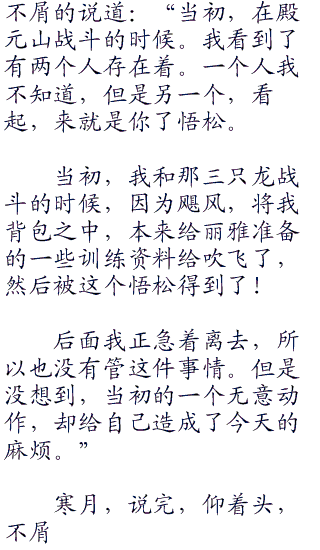 不屑的说道：“当初，在殿
元山战斗的时候。我看到了
有两个人存在着。一个人我
不知道，但是另一个，看
起，来就是你了悟松。
当初，我和那三只龙战
斗的时候，因为飓风，将我
背包之中，本来给丽雅准备
的一些训练资料给吹飞了，
然后被这个悟松得到了！
后面我正急着离去，所
以也没有管这件事情。但是
没想到，当初的一个无意动
作，却给自己造成了今天的
麻烦。”
寒月，说完，仰着头，
不屑